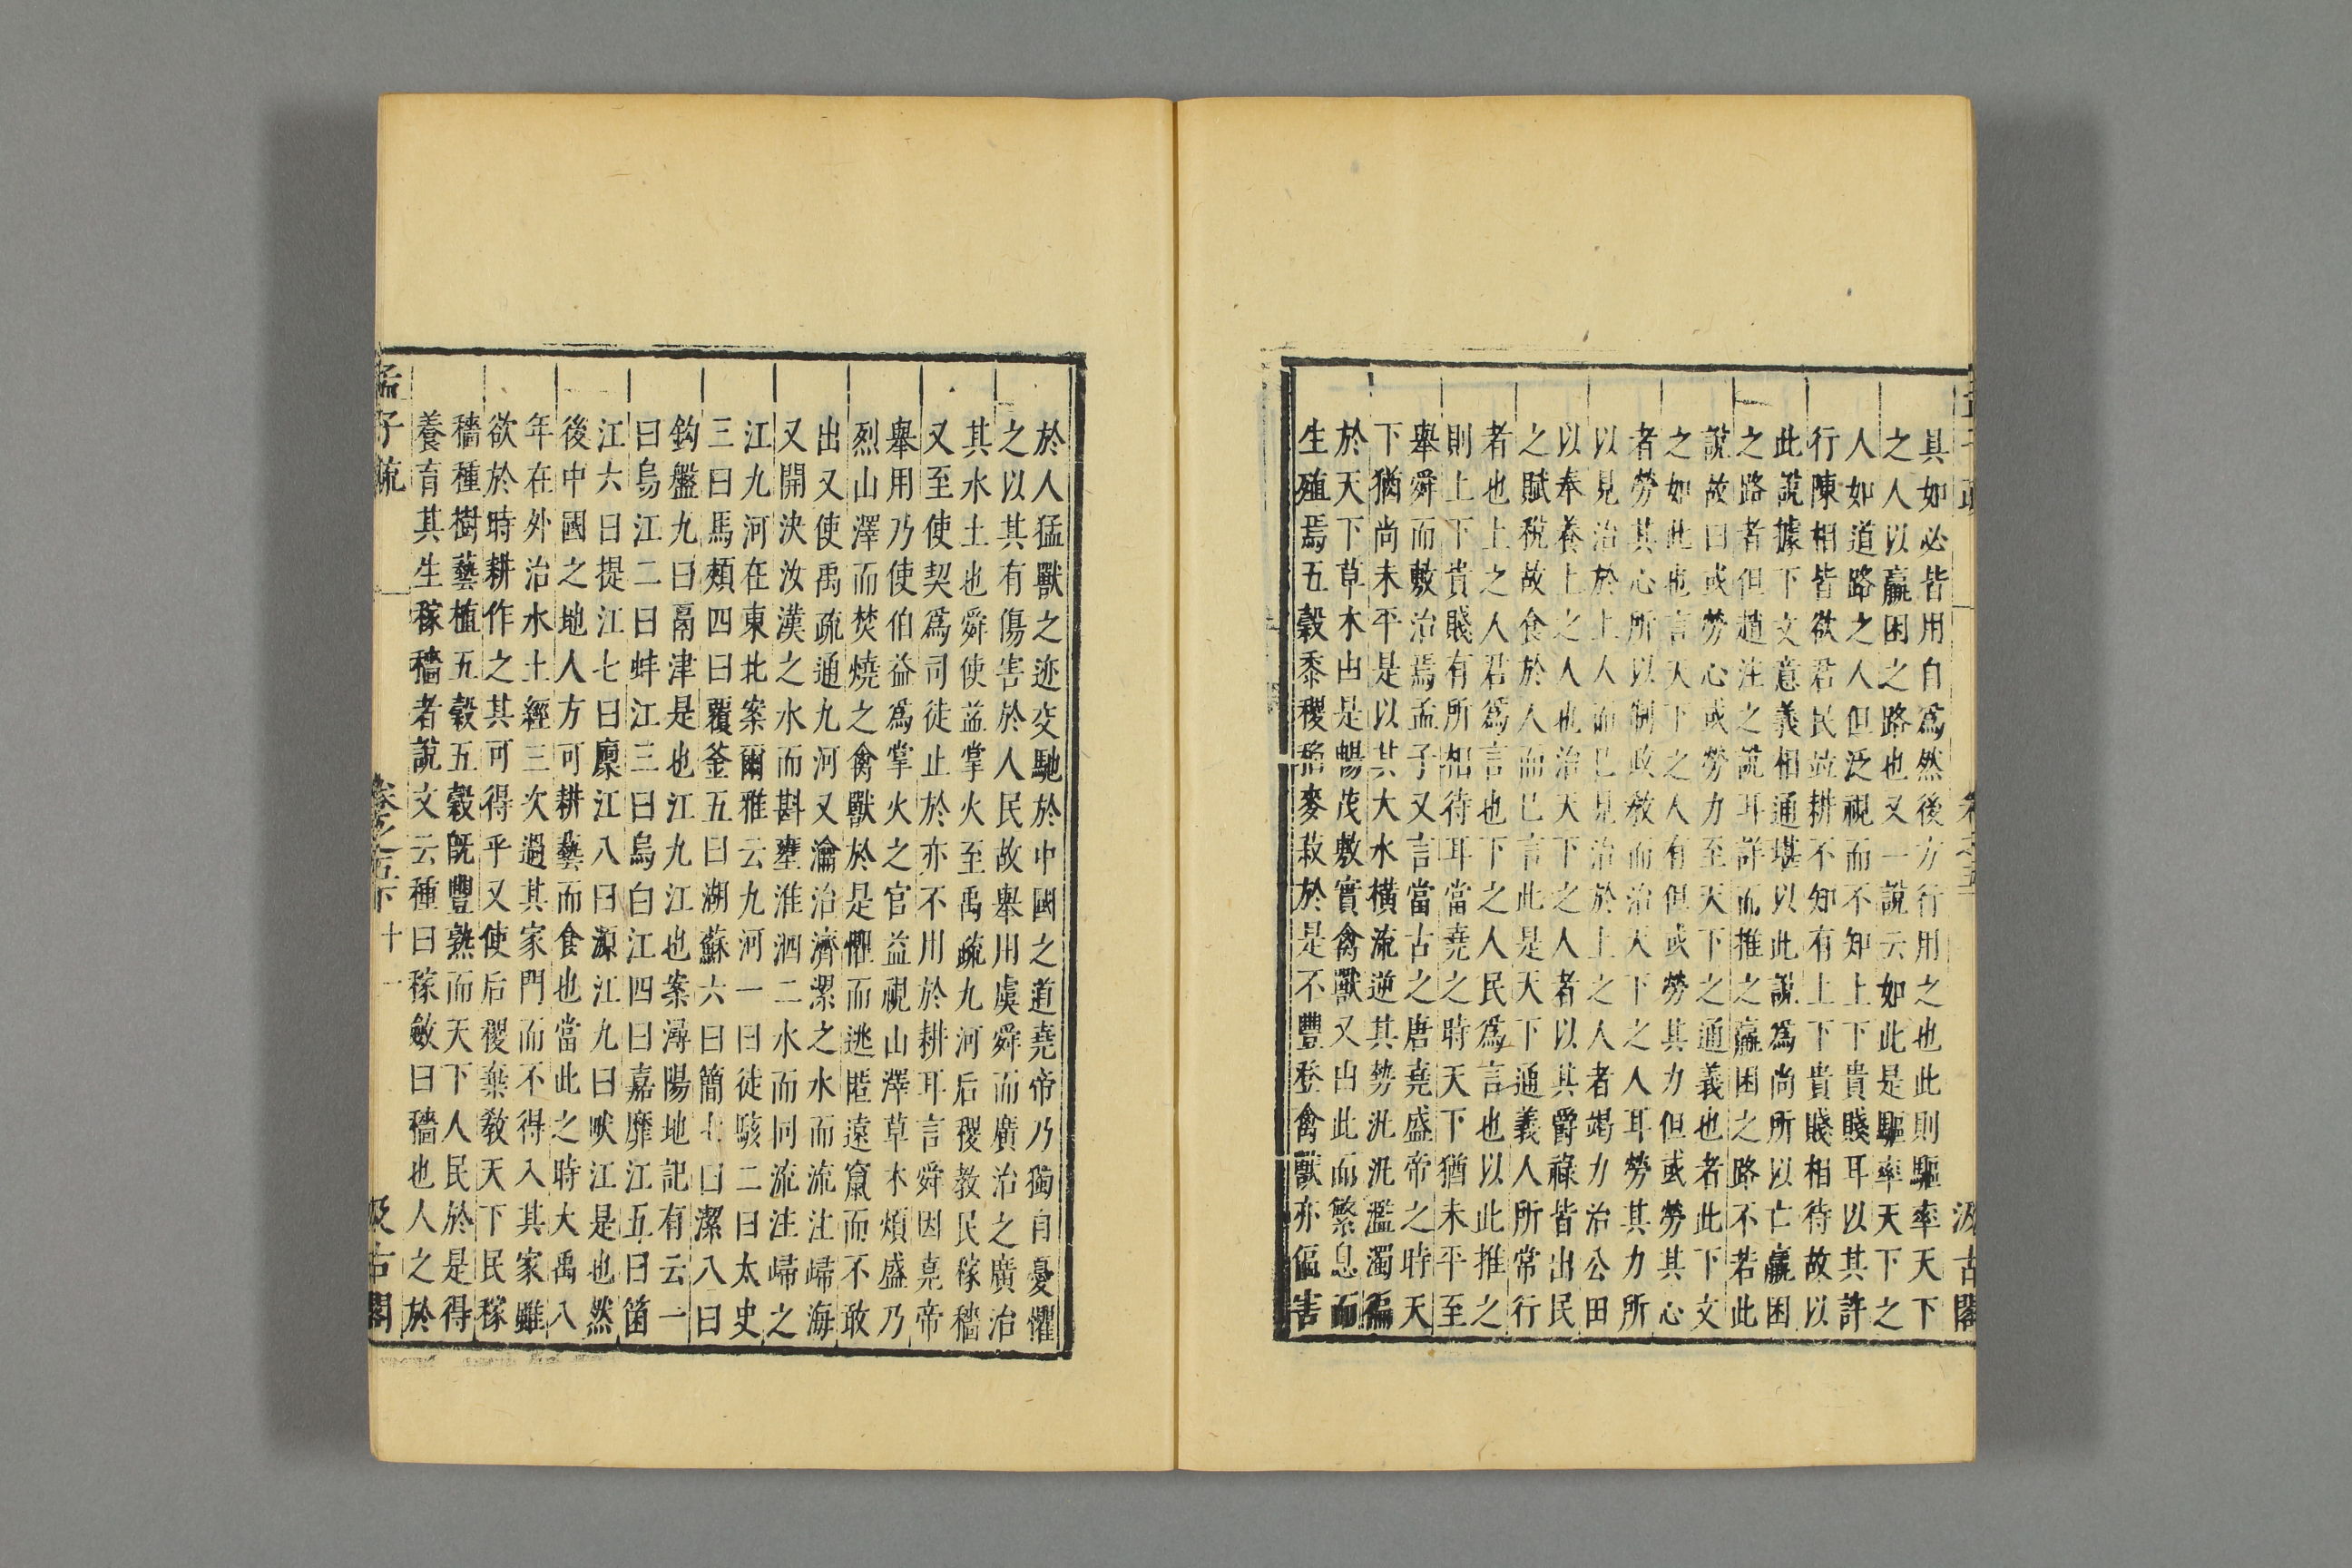 具如必皆用自爲然後方行用之也此則驅率天下
之人以羸困之路也又一說云如此是驅率天下之
人如道路之人但泛視而不知上下貴賤耳以其許
行陳相皆欲君民竝耕不知有上下貴賤相待故以
此說據下文意義相通堪以此說爲尚所以亡羸困
之路者但趙注之說耳詳而推之羸困之路不若此
說故曰或勞心或勞力至天下之通義也者此下文
之如此也言天下之人有但或勞其力但或勞其心
者勞其心所以制政敎而治天下之人耳勞其力所
以見治於上人而已見治於上之人者竭力治公田
以奉養上之人也治天下之人者以其爵祿皆出民
之賦稅故食於人而已言此是天下通義人所常行
者也上之人君爲言也下之人民爲言也以此推之
則上下貴賤有所相待耳當堯之時天下猶未平至
舉舜而敷治焉孟子又言當古之唐堯盛帝之時天
下猶尚未平是以其大水橫流逆其勢氾氾濫濁徧
於天下草木由是暢茂敷實禽獸又由此而繁息而
生殖焉五穀黍稷稻麥菽於是不豐登禽獸亦偪害
汲古閣
於人猛獸之迹交馳於中國之道堯帝乃獨自憂懼
之以其有傷害於人民故舉用虞舜而廣治之廣治
其水土也舜使益掌火至禹疏九河后稷教民稼穡
又至使契爲司徒止於亦不用於耕耳言舜因堯帝
舉用乃使伯益爲掌火之官益視山澤草木煩盛乃
烈山澤而焚燒之禽獸於是懼而逃匿遠竄而不敢
出又使禹疏通九河又瀹治濟漯之水而流注歸海
又開決汝漢之水而斟壅淮泗二水而同流注歸之
江九河在東北案爾雅云九河一曰徒駭二曰太史
三曰馬頰四曰覆釜五曰湖蘇六曰簡七曰潔八曰
鈎盤九曰鬲津是也江九江也案潯陽地記有云一
曰烏江二曰蚌江三曰烏白江四曰嘉靡江五曰箘
江六曰提江七曰廩江八曰源江九曰畎江是也然
後中國之地人方可耕藝而食也當此之時大禹八
年在外治水土經三次過其家門而不得入其家雖
欲於時耕作之其可得乎又使后稷棄敎天下民稼
穡種樹藝植五穀五穀旣豐熟而天下人民於是得
養育其生稼穡者說文云種曰稼斂曰穡也人之於
孟子疏 卷之五下 十一 汲古閣